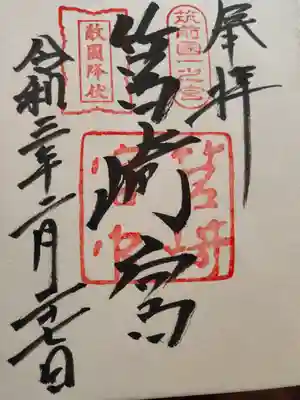 奉拝
筑前国一之宮
筥崎宮
筥崎宮印
敵國降伏
令和三年二月二七日